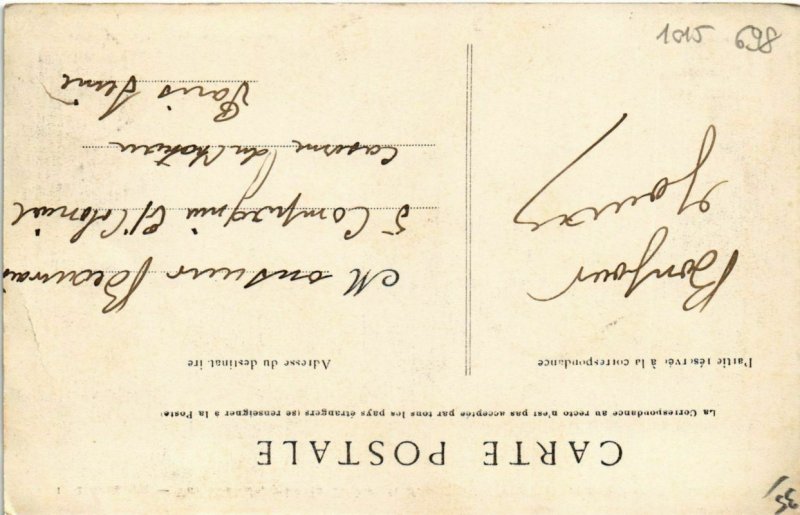 CARTE POSTALE
La Correspondance au recto n'est pas acceptée par tous les pays étrangers (se renseigner à la Poste)
Partie réservée à la correspondance
Adresse du destinataire
Bonjour
Monsieur Beauvais
5 Compagnie
Colonial
Caserne du Chateau
Paris Seine
1015 698
35